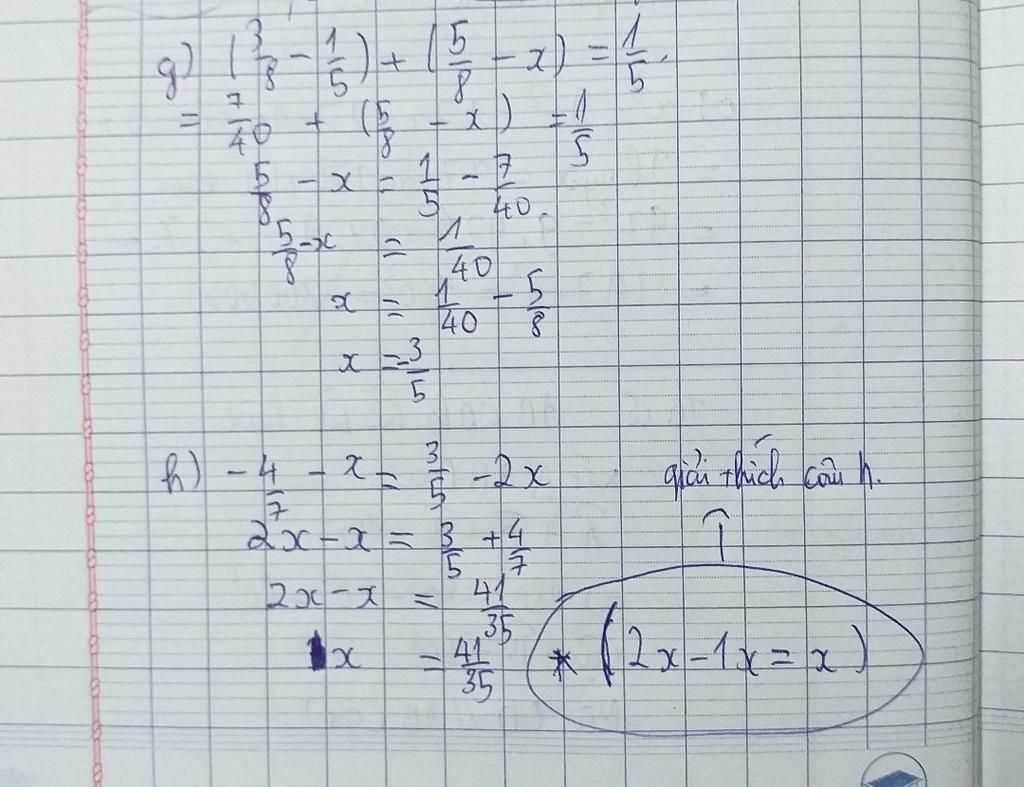 g) (3/8 - 1/5) + (5/8 - x) = 1/5.
= 7/40 + (5/8 - x) = 1/5
5/8 - x = 1/5 - 7/40.
5/8 - x = 1/40
x = 1/40 - 5/8
x = -3/5
h) -4/7 - x = 3/5 - 2x giải thích câu h.
2x - x = 3/5 + 4/7
2x - x = 41/35
1x = 41/35 * (2x - 1x = x)